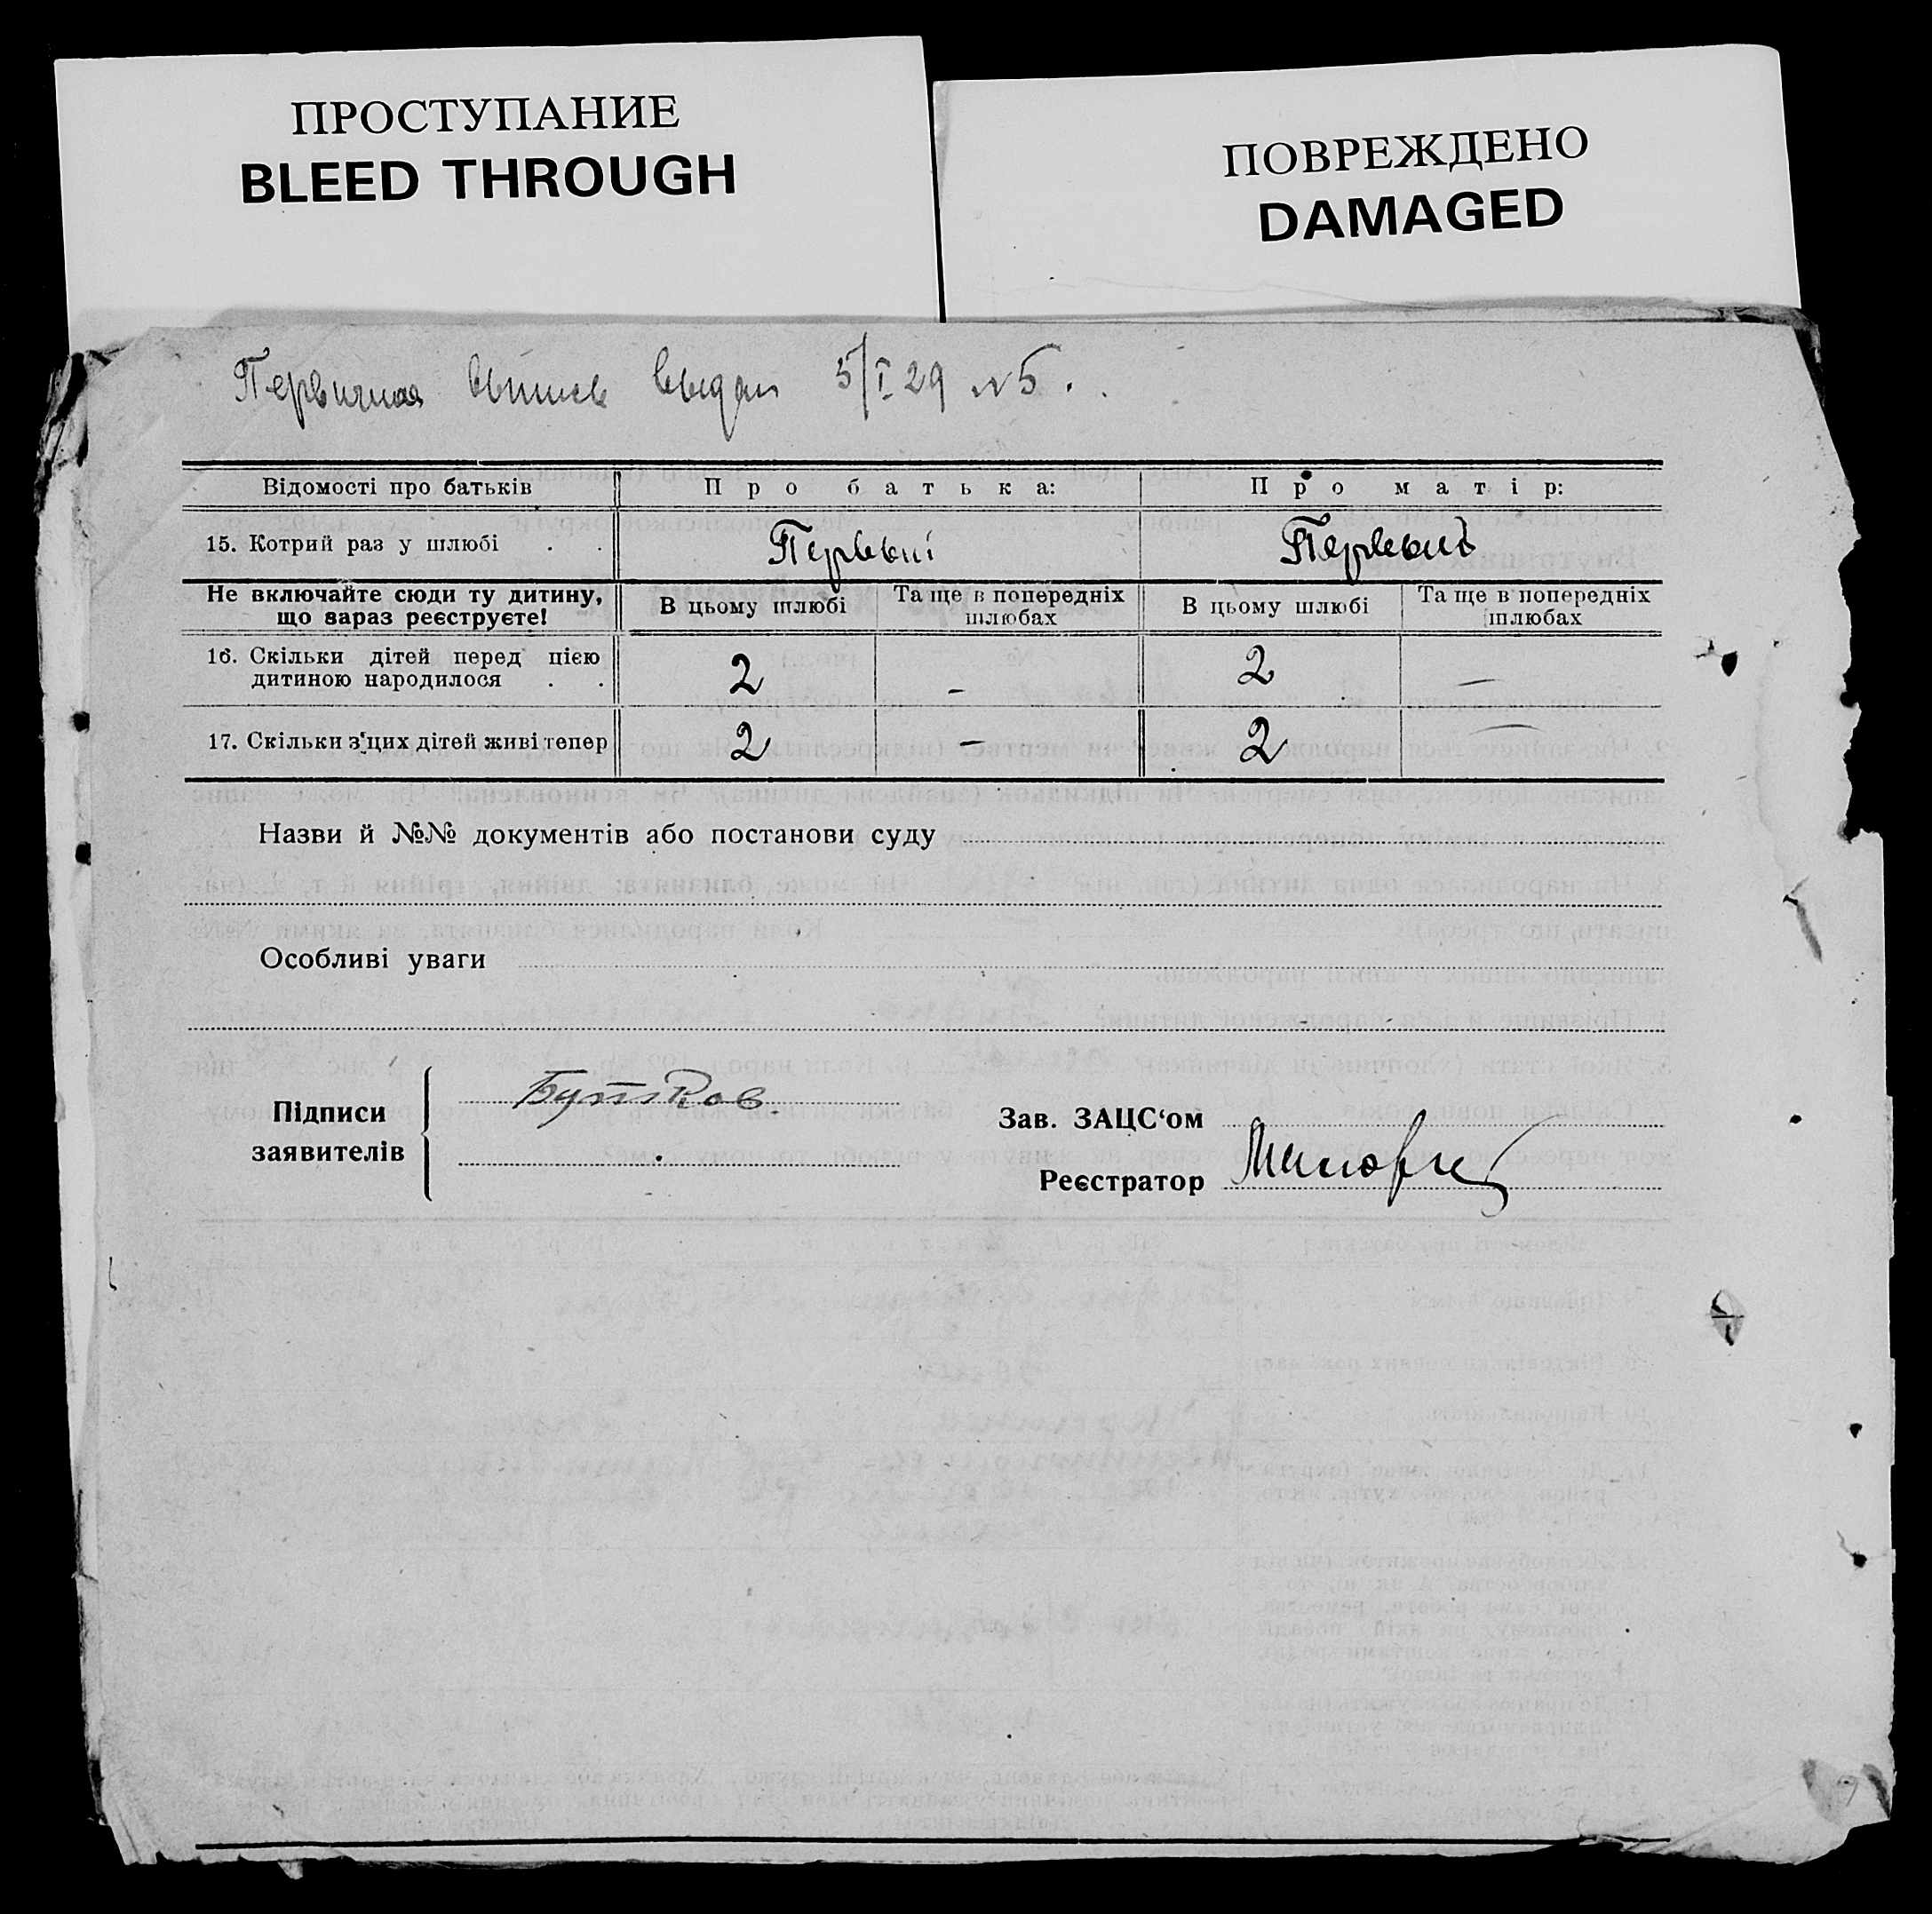 ПРОСТУПАНИЕ
BLEED THROUGH
ПОВРЕЖДЕНО
DAMAGED
Первичная выпись выдан 5/I 29 № 5.
Відомості про батьків Про батька: Про матір:
15. Котрий раз у шлюбі . . Первый Первый
Не включайте сюди ту дитину, що зараз реєструєте! В цьому шлюбі Та ще в попередніх шлюбах В цьому шлюбі Та ще в попередніх шлюбах
16. Скільки дітей перед цією дитиною народилося . . 2 – 2 –
17. Скільки з'цих дітей живі тепер 2 – 2 –
Назви й №№ документів або постанови суду
Особливі уваги
Підписи заявителів
Бутков.
Зав. ЗАЦС‘ом
Реєстратор